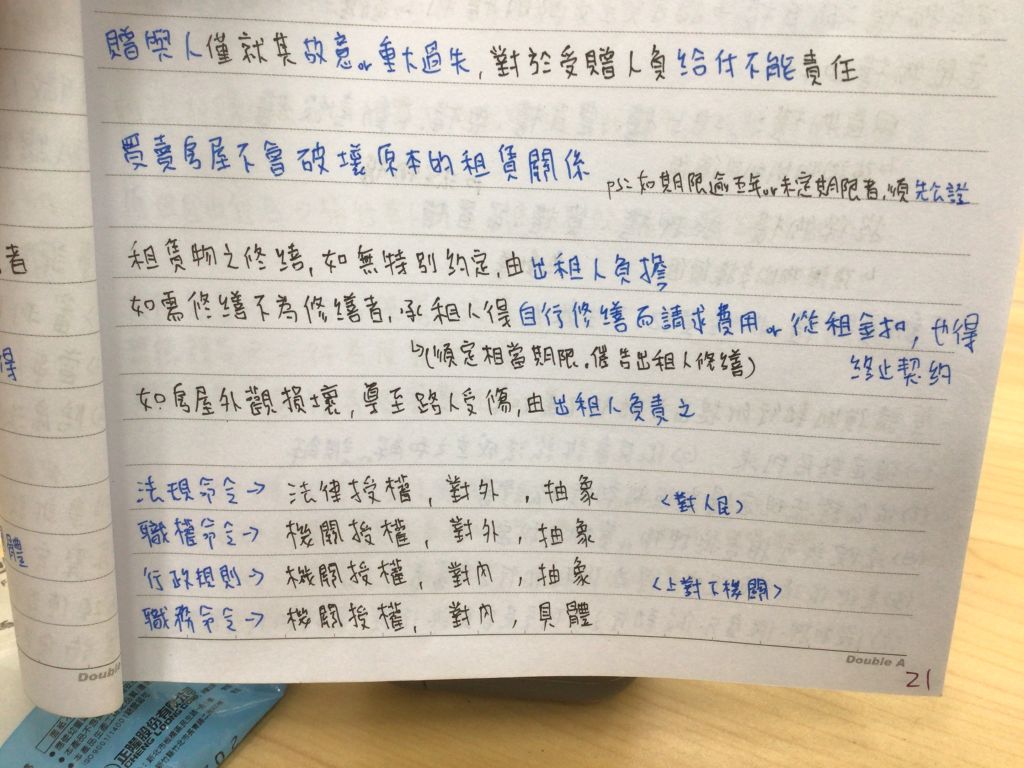 贈與人僅就其故意or重大過失,對於受贈人負給付不能責任
買賣房屋不會破壞原本的租賃關係
ps:如期限逾五年or未定期限者,須先公證
租賃物之修繕,如無特別約定,由出租人負擔
如需修繕不為修繕者,承租人得自行修繕而請求費用or從租金扣,也得
終止契約
↳(須定相當期限。催告出租人修繕)
如房屋外觀損壞,導至路人受傷,由出租人負責之
法規命令→ 法律授權,對外,抽象 <對人民>
職權命令→ 機關授權,對外,抽象
行政規則→ 機關授權,對內,抽象 <上對下機關>
職務命令→ 機關授權,對內,具體
Double A
21
者
得
體
Double
正隆股份有限
CHENG LOONG